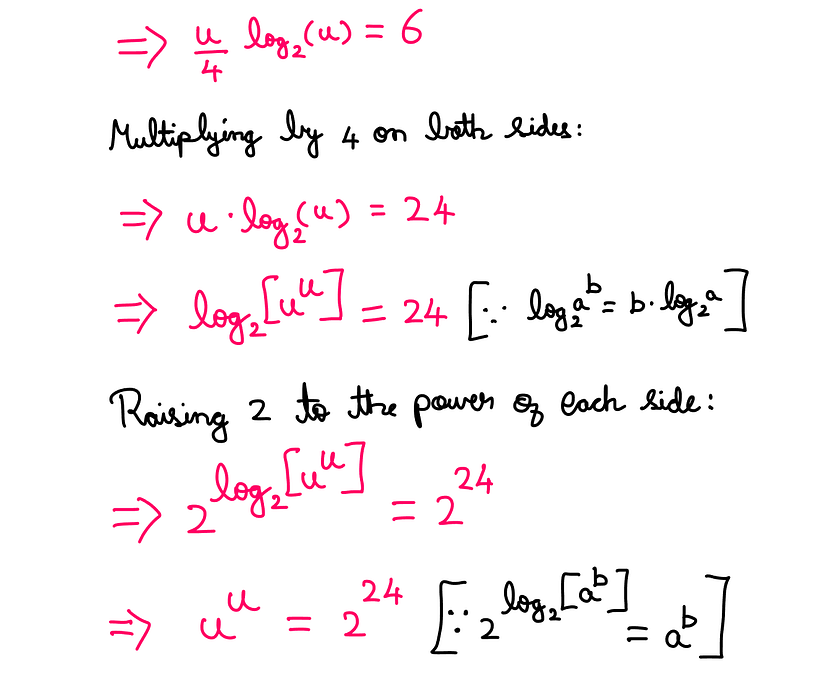 ⇒ u/4 log₂(u) = 6
Multiplying by 4 on both sides:
⇒ u · log₂(u) = 24
⇒ log₂[uᵘ] = 24 [∵ log₂aᵇ = b · log₂a]
Raising 2 to the power of each side:
⇒ 2^log₂[uᵘ] = 2²⁴
⇒ uᵘ = 2²⁴ [∵ 2^log₂[aᵇ] = aᵇ]